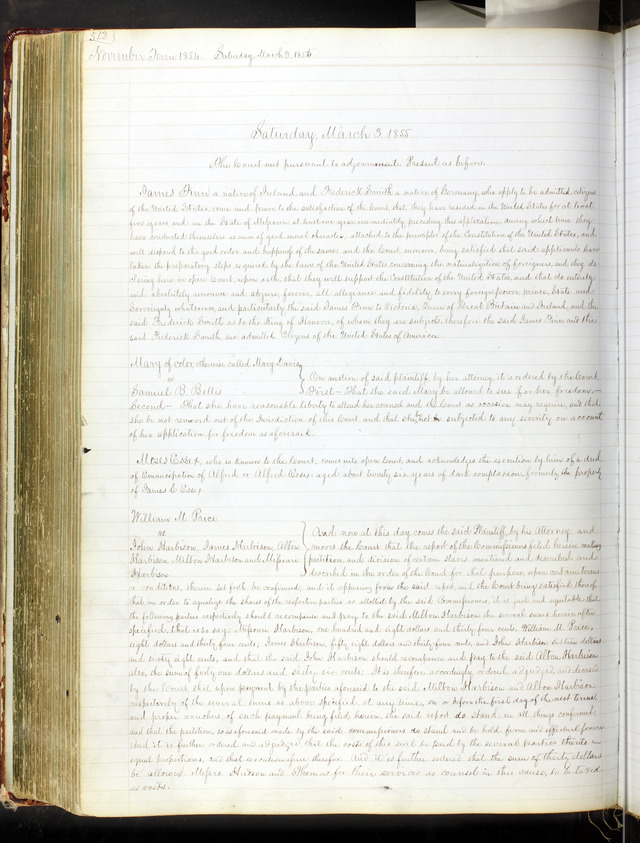 513}
November Term 1854. Saturday March 3, 1855
Saturday, March 3 1855
The Court met pursuant to adjournment. Present as before.
James Finn a native of Ireland and Frederick Smith a native of Germany, who apply to be admitted citizens
of the United States, come and prove to the satisfaction of the Court, that they have resided in the United States for at least
five years and in the State of Missouri at least one year immediately preceding this application, during which time they
have conducted themselves as men of good moral character, attached to the principles of the Constitution of the United States, and
well disposed to the good order and happiness of the same: and the Court, moreover, being satisfied that said applicants have
taken the preparatory steps required by the laws of the United States concerning the naturalization of foreigners, and they de-
claring here in open Court, upon oath, that they will support the Constitution of the United States, and that do entirely
and absolutely renounce and abjure, forever, all allegiance and fidelity to every foreign power, prince, State and
Sovereignty whatsoever, and particularly the said James Finn to Victoria, Queen of Great Britain and Ireland, and the
said Frederick Smith as to the King of Hanover, of whom they are subjects, therefore the said James Finn and the
said Frederick Smith, are admitted Citizens of the United States of America.
Mary of color, otherwise called Mary Davis
vs
On motion of said plaintiff, by her attorney, it is ordered by the Court,
Samuel B. Bellis
First — That the said Mary be allowed to sue for her freedom.—
Second — That she have reasonable liberty to attend her counsel and the Court as occasion may require, and that
she be not removed out of the Jurisdiction of this Court, and that she be not subjected to any severity on account
of her application for freedom as aforesaid.
Moses Essex, who is known to the Court, comes into open Court, and acknowledges the execution by him of a deed
of Emancipation of Alfred or Alfred Essex aged about twenty six years of dark complexion, formerly the property
of James C Essex
William M. Price
vs
And now at this day comes the said Plaintiff, by his Attorney, and
John Harbison, James Harbison, Alton
moves the Court that the report of the Commissioners filed herein making
Harbison, Milton Harbison and Missouri
partition and division of certain slaves mentioned and described and
Harbison
described in the order of the Court for that purpose upon certain terms
or conditions, therein set forth be confirmed, and it appearing from the said report, and the Court being satisfied thereof
that in order to equalize the shares of the respective parties as allotted by the said Commissioners, it is just and equitable that
the following parties respectively should recompense and pay to the said Milton Harbison the several sums herein after
specified, that is to say: Missouri Harbison, one hundred and eight dollars and thirty four cents, William M. Price,
eight dollars and thirty four cents, James Harbison, fifty eight dollars and thirty four cents, and John Harbison sixteen dollars
and sixty eight cents, and that the said John Harbison should recompense and pay to the said Alton Harbison
also, the sum of forty one dollars and sixty six cents: It is therefore accordingly ordered, adjudged, and decreed
by the Court, that upon payment by the parties aforesaid to the said Milton Harbison and Alton Harbison
respectively of the several sums as above specified, at any time, on or before the first day of the next term,
and proper vouchers of such payment being filed herein, the said report do stand in all things confirmed,
and that the partition, so as aforesaid made by the said commissioners do stand and be held firm and effectual forever.
And it is further ordered and adjudged that the costs of this suit be paid by the several parties thereto in
equal proportions, and that execution issue therefor. And it is further ordered that the sum of thirty dollars
be allowed Messrs. Hudson and Thomas for their services as counsel in this cause, to be taxed
as costs.